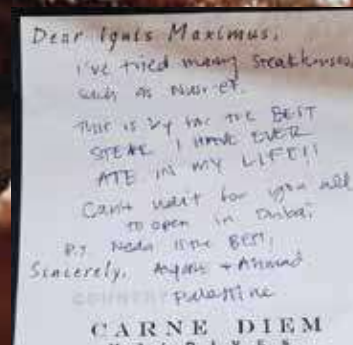 Dear Ignis Maximus,
I've tried many steakhouses,
such as Nusr-et.
This is by far the BEST
STEAK I HAVE EVER
ATE IN MY LIFE!!
Can't wait for you all
to open in Dubai,
P.S Neda is the BEST,
Sincerely, + Ahmad
COUNTRY Palestine
CARNE DIEM